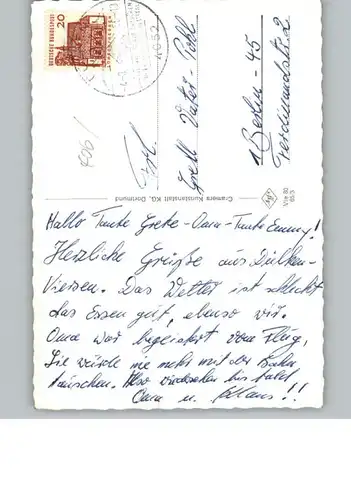 20
DEUTSCHE BUNDESPOST
4052
Frl.
Gretl Vater-Pohl
1 Berlin - 45
Ferdinandstr. 2
Cramers Kunstanstalt KG, Dortmund
Hallo Tante Grete - Oma - Tante Emmy!
Herzliche Grüße aus Dülken-
Viersen. Das Wetter ist schlecht
das Essen gut, ebenso wir.
Oma war begeistert vom Flug,
Sie würde nie mehr mit der Bahn
tauschen. Also wiedersehen bis bald
Oma u. Klaus!!